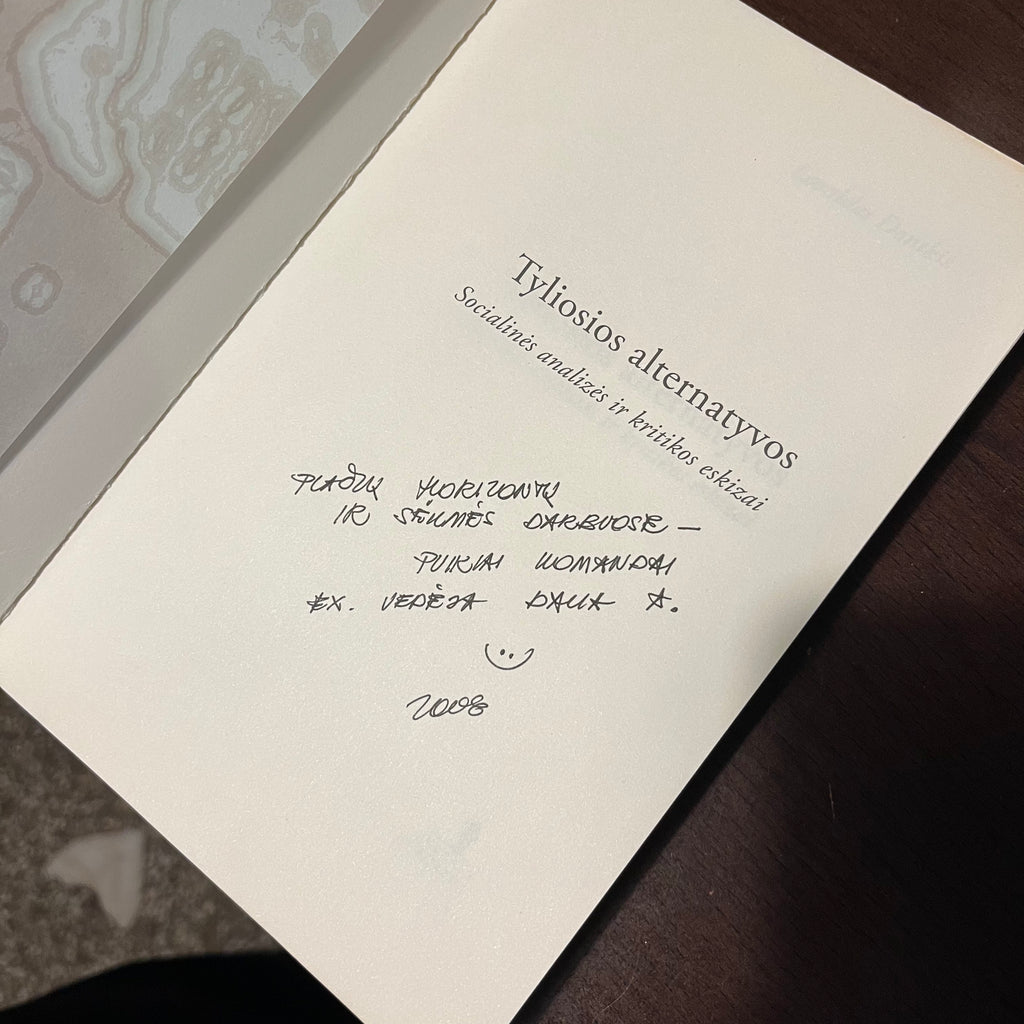 Tyliosios alternatyvos
Socialinės analizės ir kritikos eskizai
PLAČIŲ HORIZONTŲ
IR SĖKMĖS DARBUOSE –
PUIKIAI KOMANDAI
EX. VEDĖJA DALIA A.
2008